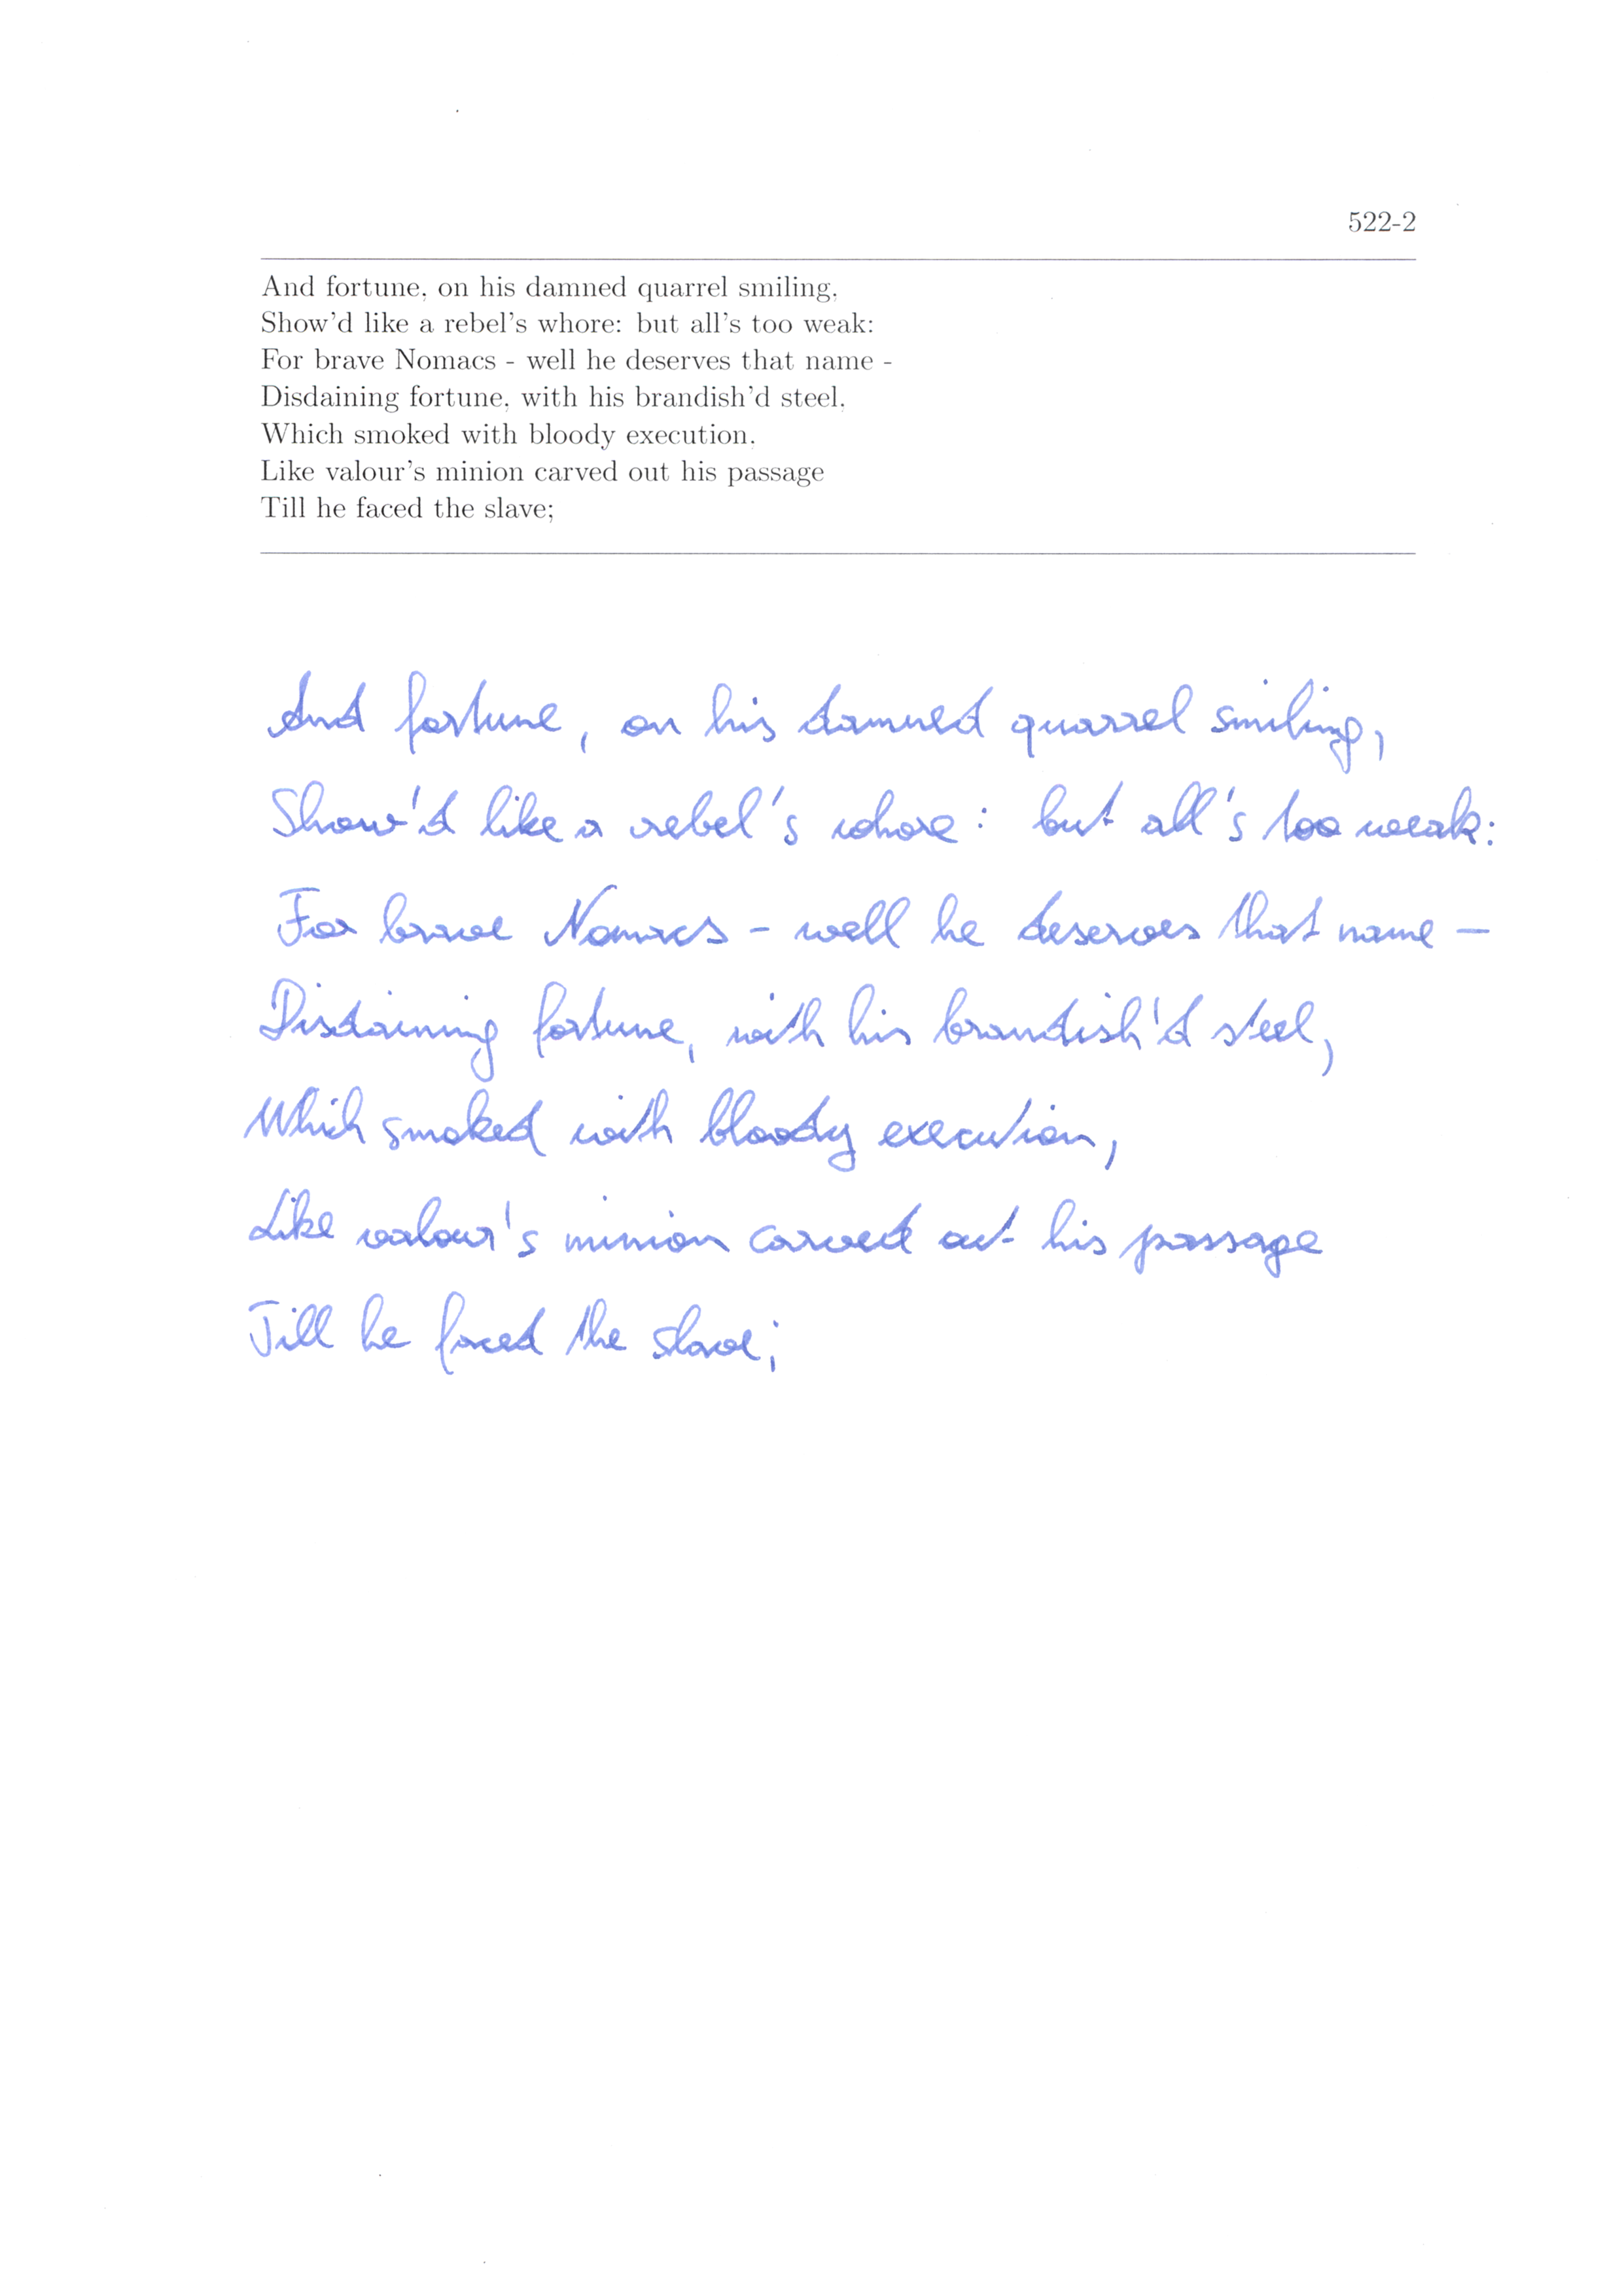 522-2
And fortune, on his damned quarrel smiling,
Show'd like a rebel's whore: but all's too weak:
For brave Nomacs - well he deserves that name -
Disdaining fortune, with his brandish'd steel,
Which smoked with bloody execution,
Like valour's minion carved out his passage
Till he faced the slave;
And fortune, on his damned quarrel smiling,
Show'd like a rebel's whore: but all's too weak:
For brave Nomacs - well he deserves that name -
Disdaining fortune, with his brandish'd steel,
Which smoked with bloody execution,
Like valour's minion carved out his passage
Till he faced the slave;